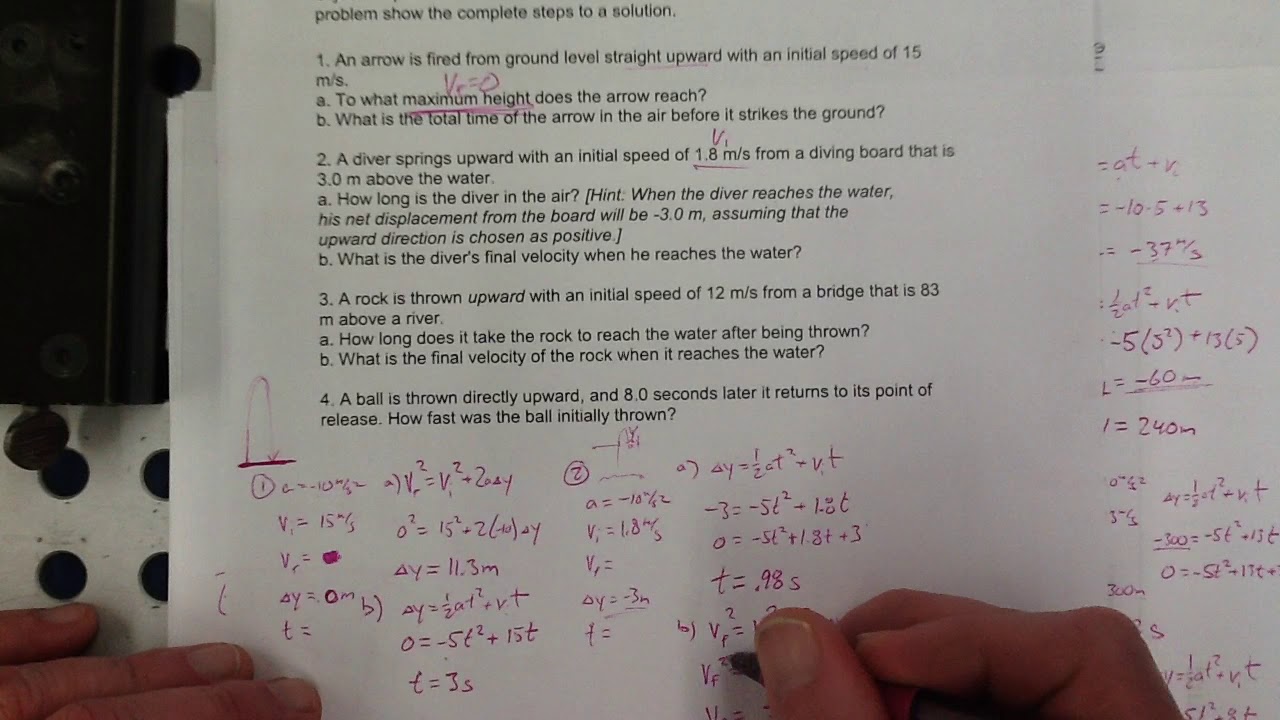 problem show the complete steps to a solution.
1. An arrow is fired from ground level straight upward with an initial speed of 15
m/s.
Vf=0
a. To what maximum height does the arrow reach?
b. What is the total time of the arrow in the air before it strikes the ground?
Vi
2. A diver springs upward with an initial speed of 1.8 m/s from a diving board that is
3.0 m above the water.
a. How long is the diver in the air? [Hint: When the diver reaches the water,
his net displacement from the board will be -3.0 m, assuming that the
upward direction is chosen as positive.]
b. What is the diver's final velocity when he reaches the water?
3. A rock is thrown upward with an initial speed of 12 m/s from a bridge that is 83
m above a river.
a. How long does it take the rock to reach the water after being thrown?
b. What is the final velocity of the rock when it reaches the water?
4. A ball is thrown directly upward, and 8.0 seconds later it returns to its point of
release. How fast was the ball initially thrown?
① a=-10m/s²
Vi=15m/s
Vf=
Δy=0m
t=
a) Vf²=Vi²+2aΔy
0²=15²+2(-10)Δy
Δy=11.3m
b) Δy=½at²+Vit
0=-5t²+15t
t=3s
②
a=-10m/s²
Vi=1.8m/s
Vf=
Δy=-3m
t=
a) Δy=½at²+Vit
-3=-5t²+1.8t
0=-5t²+1.8t+3
t=.98s
b) Vf²=
Vf²
=at+Vi
=-10·5+13
=-37m/s
½at²+Vit
-5(5²)+13(5)
=-60m
=240m
Δy=½at²+Vit
-300=-5t²+13t
0=-5t²+13t+
300m
s
y=½at²+Vit